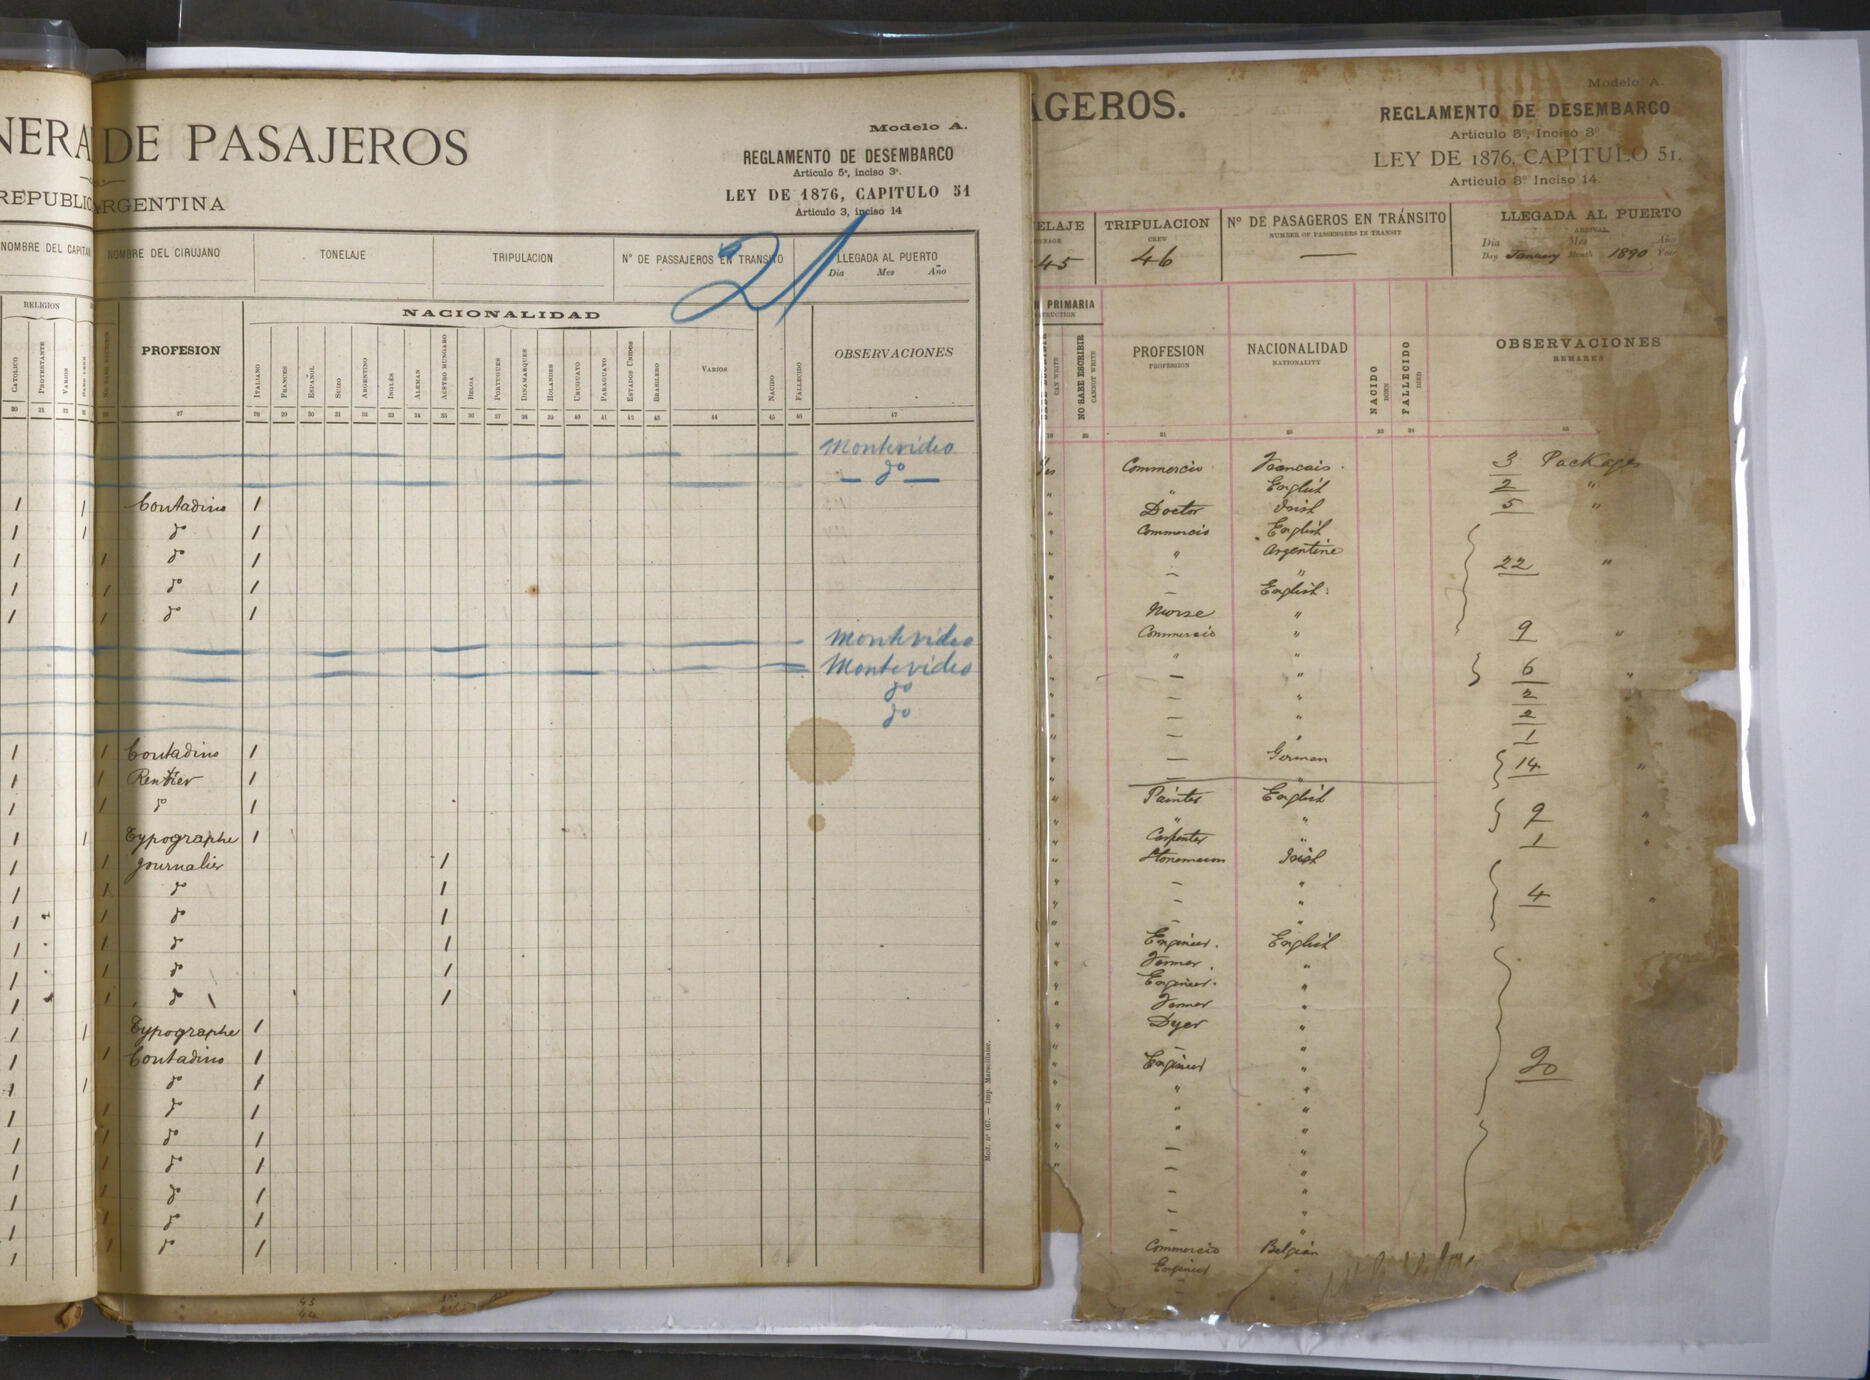 NERA DE PASAJEROS
REPUBLIC ARGENTINA
Modelo A.
REGLAMENTO DE DESEMBARCO
Artículo 5º, inciso 3º.
LEY DE 1876, CAPITULO 51
Artículo 3, inciso 14
21
NOMBRE DEL CAPITAN
NOMBRE DEL CIRUJANO
TONELAJE
TRIPULACION
Nº DE PASSAJEROS EN TRANSITO
LLEGADA AL PUERTO
Dia Mes Año
RELIGION
CATOLICO
PROTESTANTE
VARIOS
PROFESION
NACIONALIDAD
ITALIANO
FRANCES
ESPAÑOL
SUIZO
ARGENTINO
INGLÉS
ALEMAN
AUSTRO HUNGARO
BELGA
PORTUGUES
DINAMARQUES
HOLANDES
URUGUAYO
PARAGUAYO
ESTADOS UNIDOS
BRASILERO
VARIOS
NACIDO
FALLECIDO
OBSERVACIONES
20 21 22 27 28 29 30 31 32 33 34 35 36 37 38 39 40 41 42 43 44 45 46 47
Montevideo
— do —
1 1 Contadino 1
1 1 do 1
1 1 do 1
1 1 do 1
1 1 do 1
Montevideo
Montevideo
do
do
1 1 Contadino 1
1 1 Rentier 1
1 1 do 1
1 1 Typographe 1
1 1 Journalier 1
1 1 do 1
1 1 do 1
1 1 do 1
1 1 do 1
1 1 do 1
1 1 Typographe 1
1 1 Contadino 1
1 1 do 1
1 1 do 1
1 1 do 1
1 1 do 1
1 1 do 1
1 1 do 1
1 1 do 1
Mod. nº 167. — Imp. Marseillaise.
AGEROS.
Modelo A.
REGLAMENTO DE DESEMBARCO
Articulo 8º, Inciso 3º
LEY DE 1876, CAPITULO 51.
Articulo 8º Inciso 14.
ELAJE
45
TRIPULACION
CREW
46
Nº DE PASAGEROS EN TRÁNSITO
NUMBER OF PASSENGERS IN TRANSIT
—
LLEGADA AL PUERTO
ARRIVAL
Dia Mes Año
Day January Month 1890 Year
N PRIMARIA
SABE ESCRIBIR
CAN WRITE
NO SABE ESCRIBIR
CANNOT WRITE
PROFESION
PROFESSION
NACIONALIDAD
NATIONALITY
NACIDO
BORN
FALLECIDO
DIED
OBSERVACIONES
REMARKS
Yes Commercio Francais. 3 Packages
" " English 2 "
" Doctor Irish 5 "
" Commercio English
" " Argentine
" — " 22 "
" — English.
" Nurse "
" Commercio " 9 "
" " "
" — " 6 "
" — " 2
" — " 2
" — " 1
" — German 14 "
" — "
" Painter English
" " " 9 "
" Carpenter " 1 "
" Stonemason Irish
" — "
" — " 4 "
" — "
" Engineer. English
" Farmer. "
" Engineer. "
" Farmer "
" Dyer "
" — "
" Engineer " 20
" " "
" " "
" " "
" — "
" — "
— "
— "
— "
Commercio Belgian
Engineer "
43
44